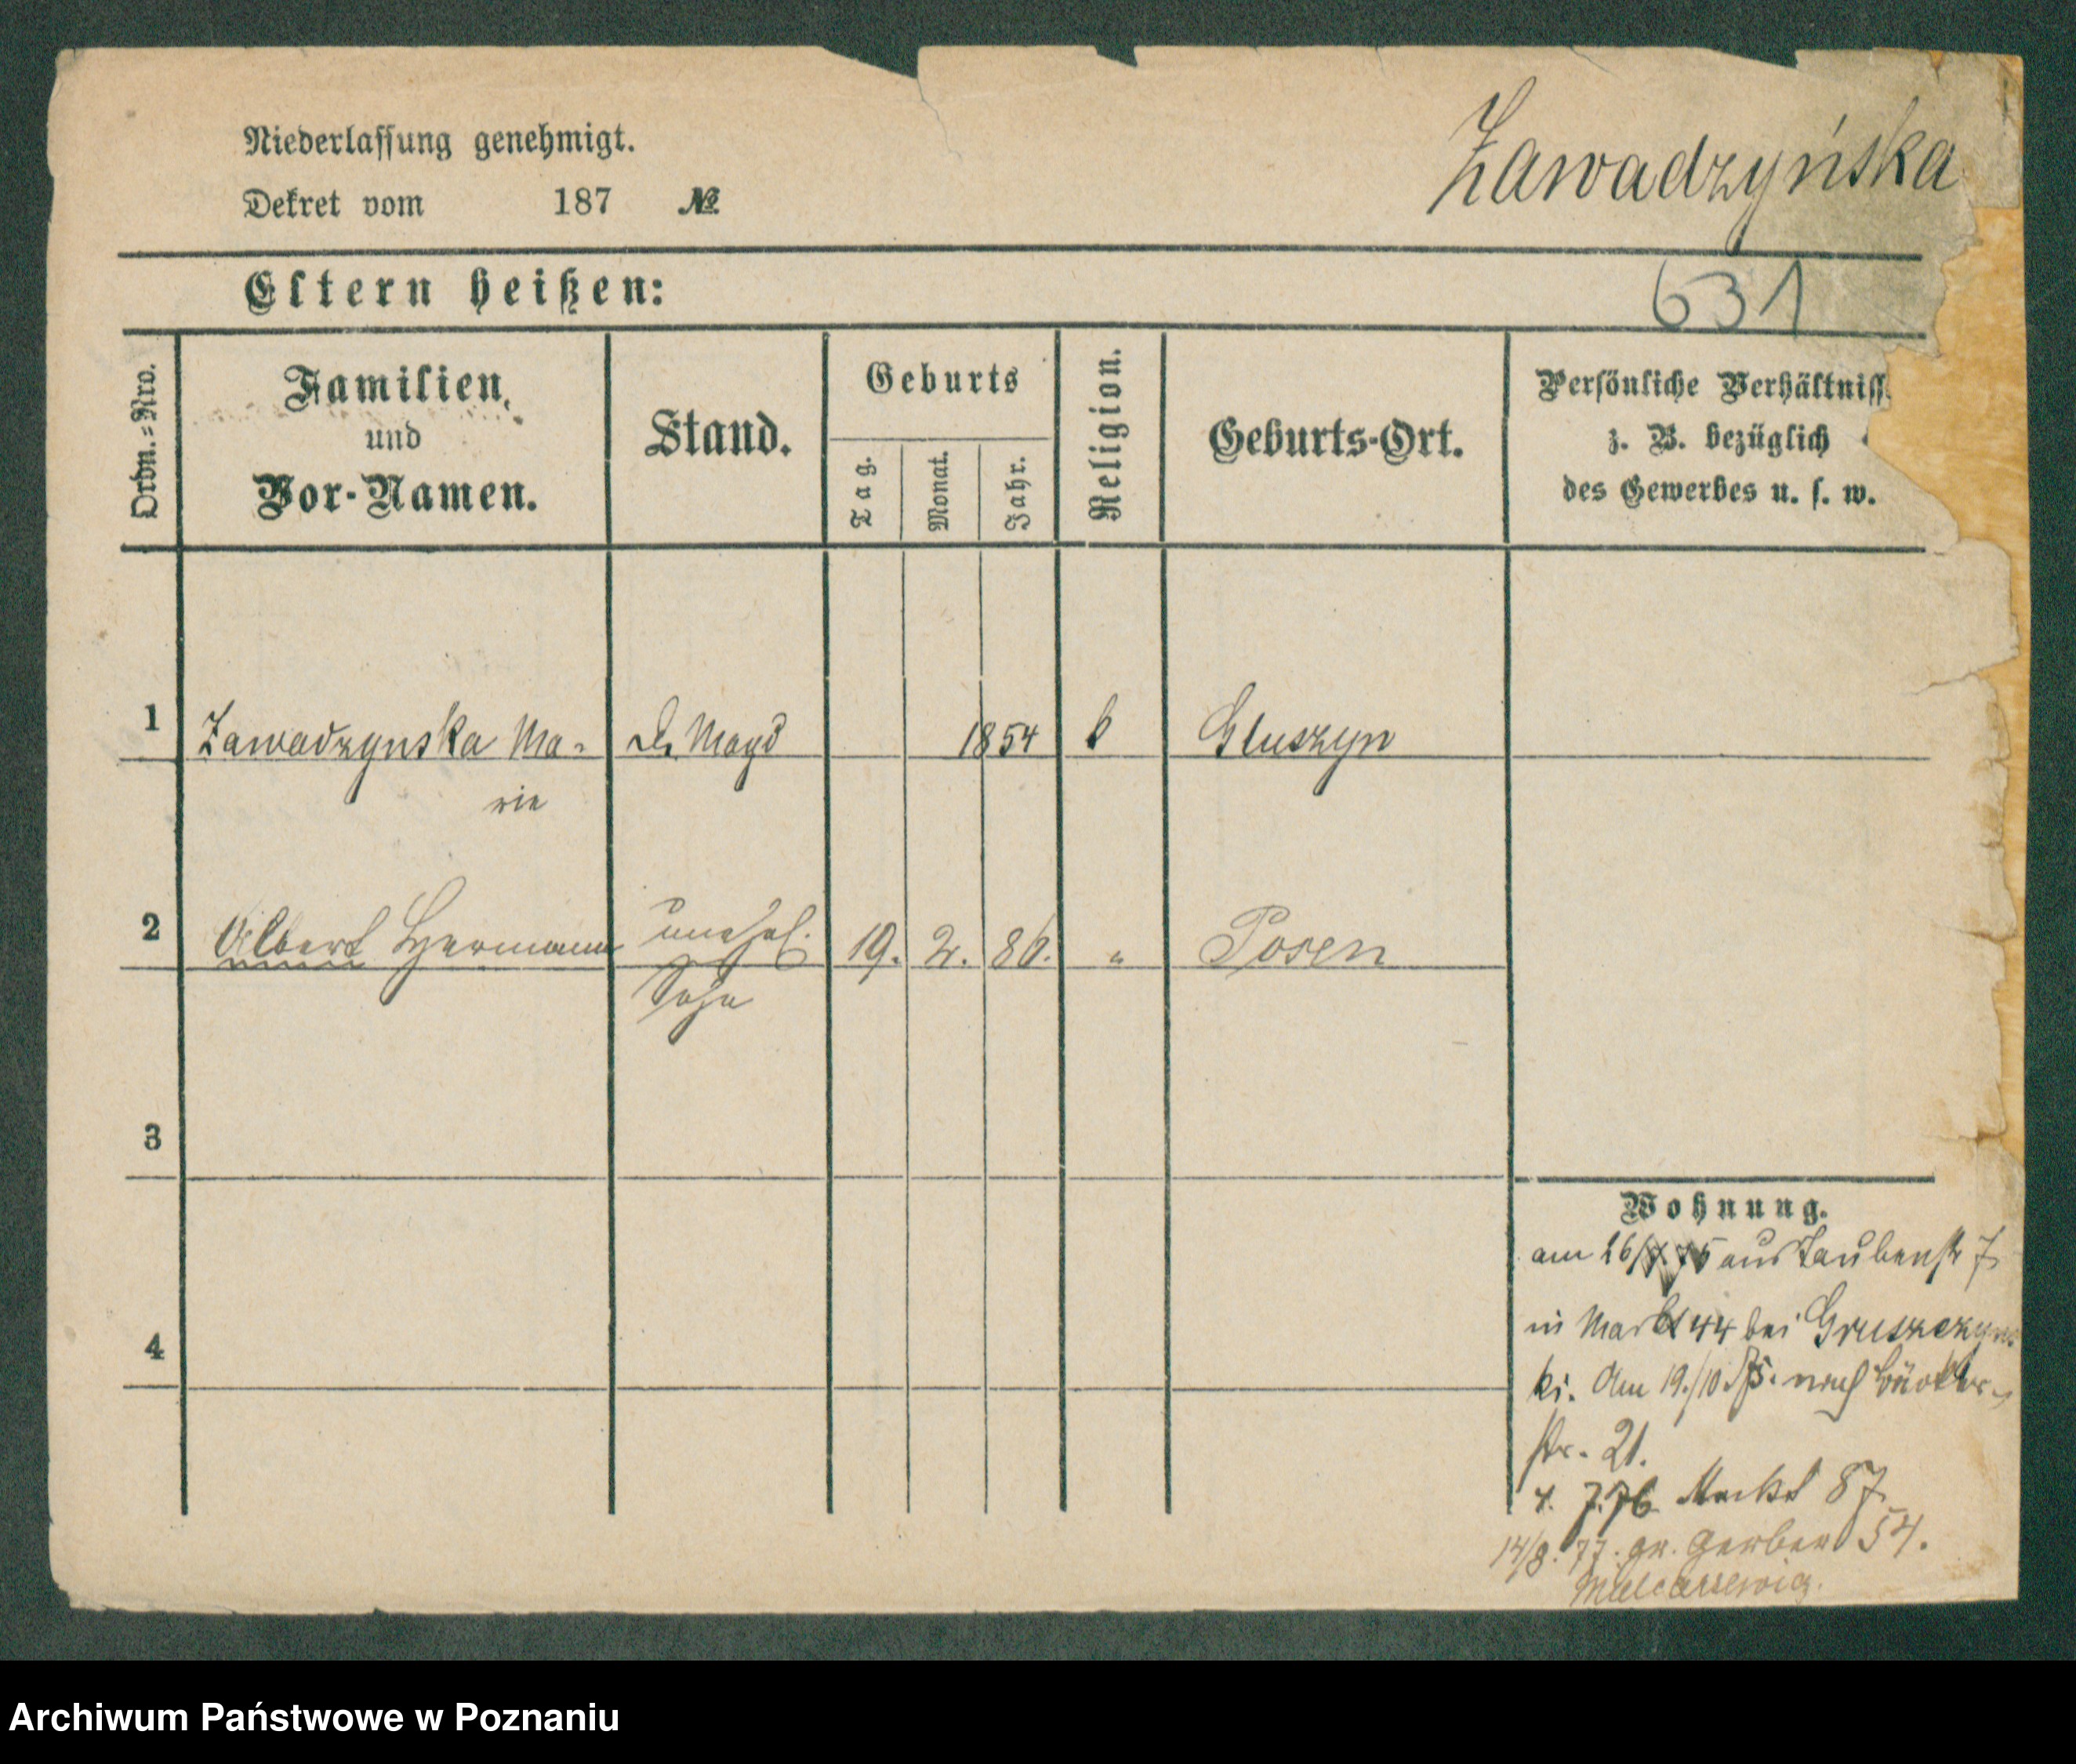 Niederlassung genehmigt.
Dekret vom 187 №
Zawadzyńska
Eltern heißen:
631
Ordn.=Nro.
Familien,
und
Vor-Namen.
Stand.
Geburts
Tag.
Monat.
Jahr.
Religion.
Geburts-Ort.
Persönliche Verhältniss
z. B. bezüglich
des Gewerbes u. s. w.
1 Zawadzynska Ma- Magd 1854 k Gluszyn
rie
2 Albert Hermann unehel. 19. 2. 86. " Posen
Sohn
3
4
Wohnung.
am 26/ 75 aus Taubenstr 7
in Markt 44 bei Gruszczyns
ki. Am 19./10. 75. nach
str. 21.
4. 7. 76. Markt 87.
14/8. 77. gr. Gerber 54.
Archiwum Państwowe w Poznaniu